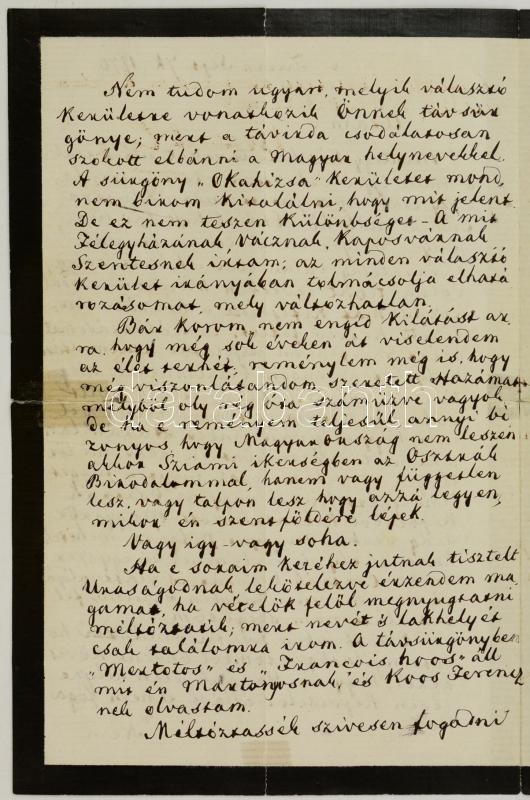 Nem tudom ugyan, melyik választó
kerületre vonatkozik Önnek távsür
gönye; mert a távirda csodálatosan
szokott elbánni a Magyar helynevekkel.
A sürgöny „Okahizsa" kerületet mond,
nem birom kitalálni, hogy mit jelent.
De ez nem teszen különbséget – A mit
Félegyházának, Vácznak, Kaposvárnak
Szentesnek irtam; az minden választó
kerület irányában tolmácsolja elhatá
rozásomat, mely változhatlan.
Bár korom nem enged kilátást ar
ra, hogy még sok éveken át viselendem
az élet terhét, reménylem még is, hogy
még viszontlátandom szeretett Hazámat
melyből oly rég óta számüzve vagyok,
de ha e reményem teljesül annyi bi
zonyos, hogy Magyarország nem leszen
akkor Sziámi ikerségben az Osztrák
Birodalommal, hanem vagy független
lesz, vagy talpon lesz hogy azzá legyen,
mikor én szent földére lépek.
Vagy igy – vagy soha.
Ha e soraim kezéhez jutnak tisztelt
Uraságodnak, lekötelezve érzendem ma
gamat, ha vételök felöl megnyugtatni
méltóztatik; mert nevét s lakhelyét
csak találomra irom. A távsürgönyben
„Mertotos" és „Francois hoos" áll
mit én Martonosnak, és Koos Ferencz
nek olvastam.
Méltóztassék szivesen fogadni
darabanth